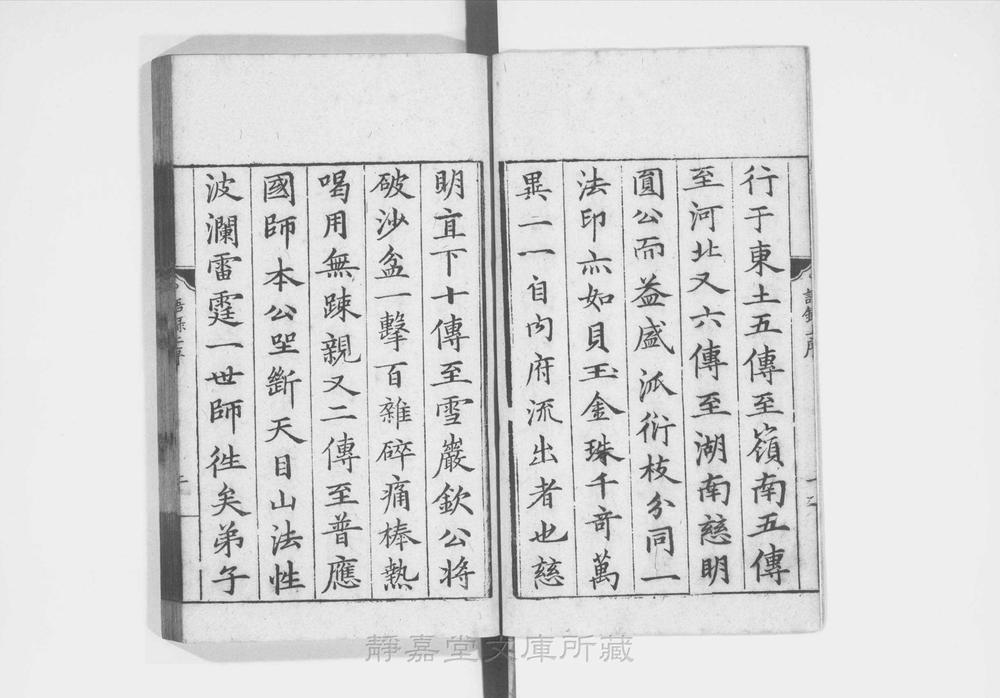 行于東土五傳至嶺南五傳
至河北又六傳至湖南慈明
圓公而益盛泒衍枝分同一
法印亦如貝玉金珠千奇萬
異一一自內府流出者也慈
明直下十傳至雪巖欽公將
破沙盆一擊百雜碎痛棒熱
喝用無踈親又二傳至普應
國師本公坐斷天目山法性
波瀾雷霆一世師徃矣弟子
語錄上序
靜嘉堂文庫所藏